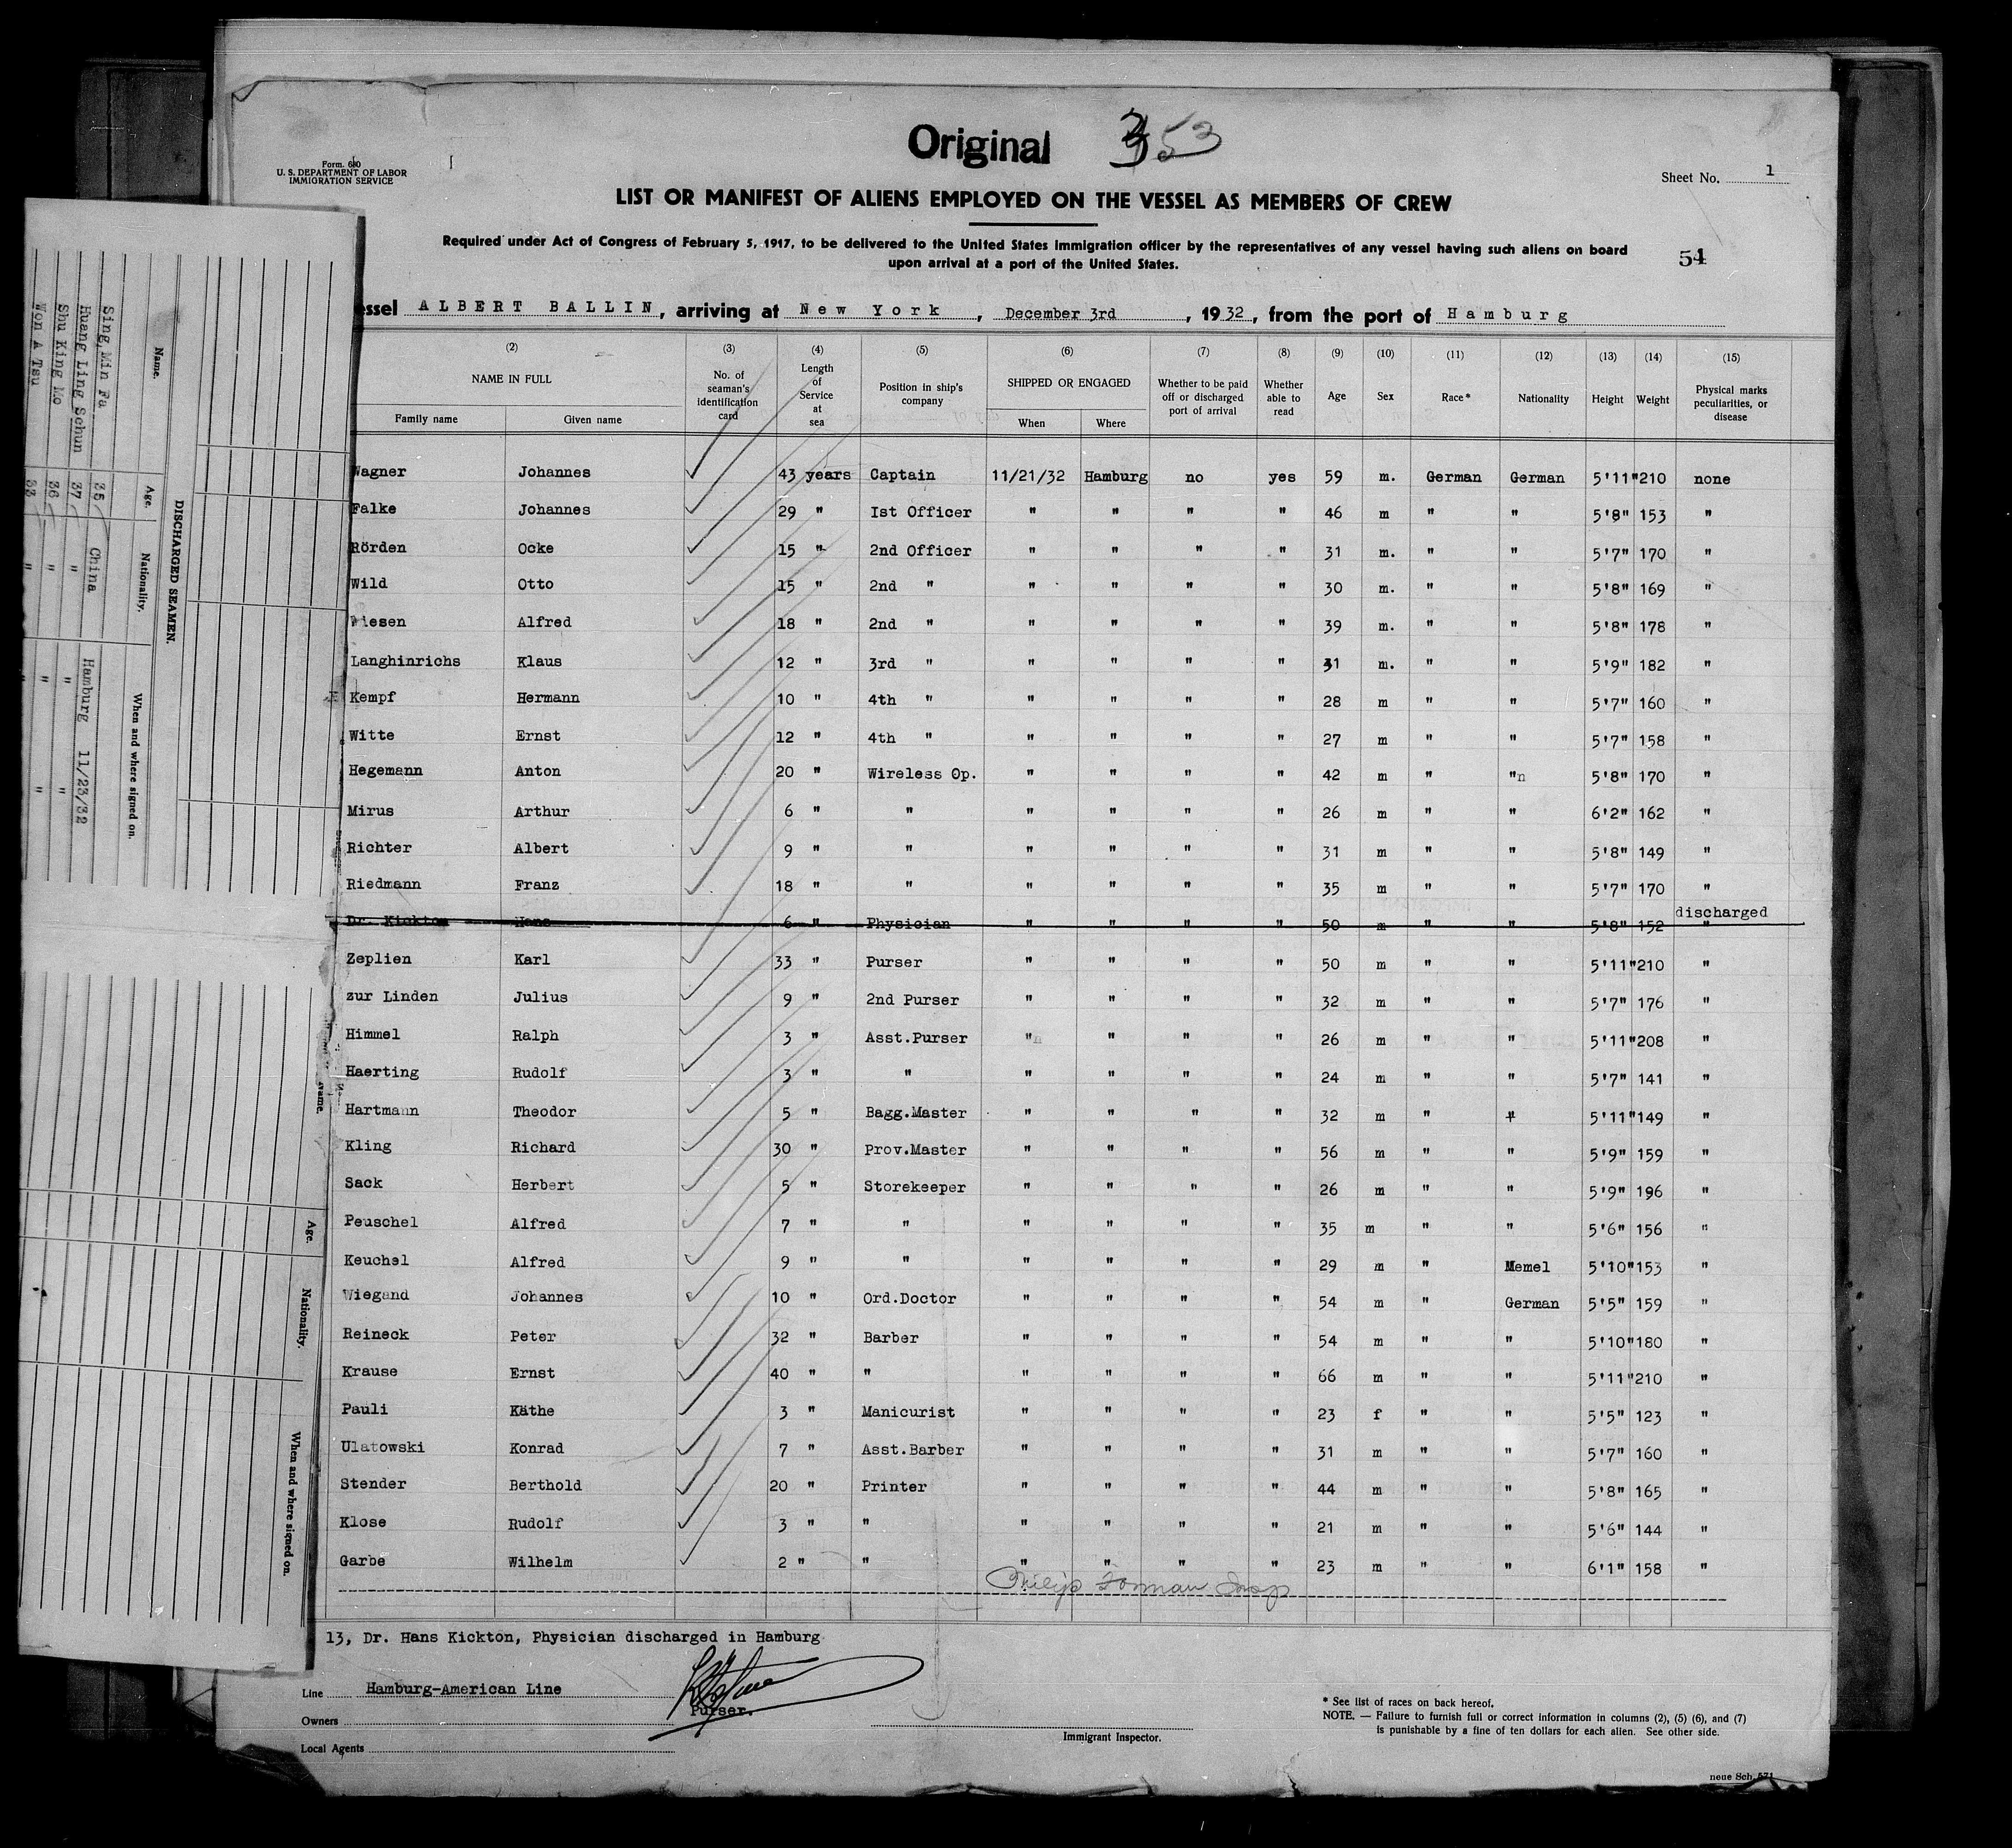 Original 353
Form. 680
U. S. DEPARTMENT OF LABOR
IMMIGRATION SERVICE
Sheet No. 1
LIST OR MANIFEST OF ALIENS EMPLOYED ON THE VESSEL AS MEMBERS OF CREW
Required under Act of Congress of February 5, 1917, to be delivered to the United States immigration officer by the representatives of any vessel having such aliens on board
upon arrival at a port of the United States.
54
essel ALBERT BALLIN, arriving at New York, December 3rd, 1932, from the port of Hamburg
(2) (3) (4) (5) (6) (7) (8) (9) (10) (11) (12) (13) (14) (15)
NAME IN FULL Family name Given name No. of seaman's identification card Length of Service at sea Position in ship's company SHIPPED OR ENGAGED When Where Whether to be paid off or discharged port of arrival Whether able to read Age Sex Race* Nationality Height Weight Physical marks peculiarities, or disease
Wagner Johannes 43 years Captain 11/21/32 Hamburg no yes 59 m. German German 5'11" 210 none
Falke Johannes 29 " Ist Officer " " " " 46 m " " 5'8" 153 "
Rörden Ocke 15 " 2nd Officer " " " " 31 m. " " 5'7" 170 "
Wild Otto 15 " 2nd " " " " " 30 m. " " 5'8" 169 "
iesen Alfred 18 " 2nd " " " " " 39 m. " " 5'8" 178 "
Langhinrichs Klaus 12 " 3rd " " " " " 31 m. " " 5'9" 182 "
Kempf Hermann 10 " 4th " " " " " 28 m " " 5'7" 160 "
Witte Ernst 12 " 4th " " " " " 27 m " " 5'7" 158 "
Hegemann Anton 20 " Wireless Op. " " " " 42 m " "n 5'8" 170 "
Mirus Arthur 6 " " " " " " 26 m " " 6'2" 162 "
Richter Albert 9 " " " " " " 31 m " " 5'8" 149 "
Riedmann Franz 18 " " " " " " 35 m " " 5'7" 170 "
Dr. Kickton Hans 6 " Physician " " " " 50 m " " 5'8" 152 " discharged
Zeplien Karl 33 " Purser " " " " 50 m " " 5'11" 210 "
zur Linden Julius 9 " 2nd Purser " " " " 32 m " " 5'7" 176 "
Himmel Ralph 3 " Asst.Purser "n " " " 26 m " " 5'11" 208 "
Haerting Rudolf 3 " " " " " " 24 m " " 5'7" 141 "
Hartmann Theodor 5 " Bagg.Master " " " " 32 m " " 5'11" 149 "
Kling Richard 30 " Prov.Master " " " " 56 m " " 5'9" 159 "
Sack Herbert 5 " Storekeeper " " " " 26 m " " 5'9" 196 "
Peuschel Alfred 7 " " " " " " 35 m " " 5'6" 156 "
Keuchel Alfred 9 " " " " " " 29 m " Memel 5'10" 153 "
Wiegand Johannes 10 " Ord.Doctor " " " " 54 m " German 5'5" 159 "
Reineck Peter 32 " Barber " " " " 54 m " " 5'10" 180 "
Krause Ernst 40 " " " " " " 66 m " " 5'11" 210 "
Pauli Käthe 3 " Manicurist " " " " 23 f " " 5'5" 123 "
Ulatowski Konrad 7 " Asst.Barber " " " " 31 m " " 5'7" 160 "
Stender Berthold 20 " Printer " " " " 44 m " " 5'8" 165 "
Klose Rudolf 3 " " " " " " 21 m " " 5'6" 144 "
Garbe Wilhelm 2 " " " " " " 23 m " " 6'1" 158 "
Philip Forman Insp
13, Dr. Hans Kickton, Physician discharged in Hamburg
Line Hamburg-American Line
Purser.
Owners
Local Agents
Immigrant Inspector.
* See list of races on back hereof.
NOTE. — Failure to furnish full or correct information in columns (2), (5) (6), and (7)
is punishable by a fine of ten dollars for each alien. See other side.
neue Sch. 571
DISCHARGED SEAMEN.
Name. Age. Nationality. When and where signed on.
Sing, Min Fa 35 China Hamburg 11/23/32
Huang Ling Schun 37 " " "
Shu King Mo 36 " " "
Won A Tsu 33 "
Name. Age. Nationality. When and where signed on.